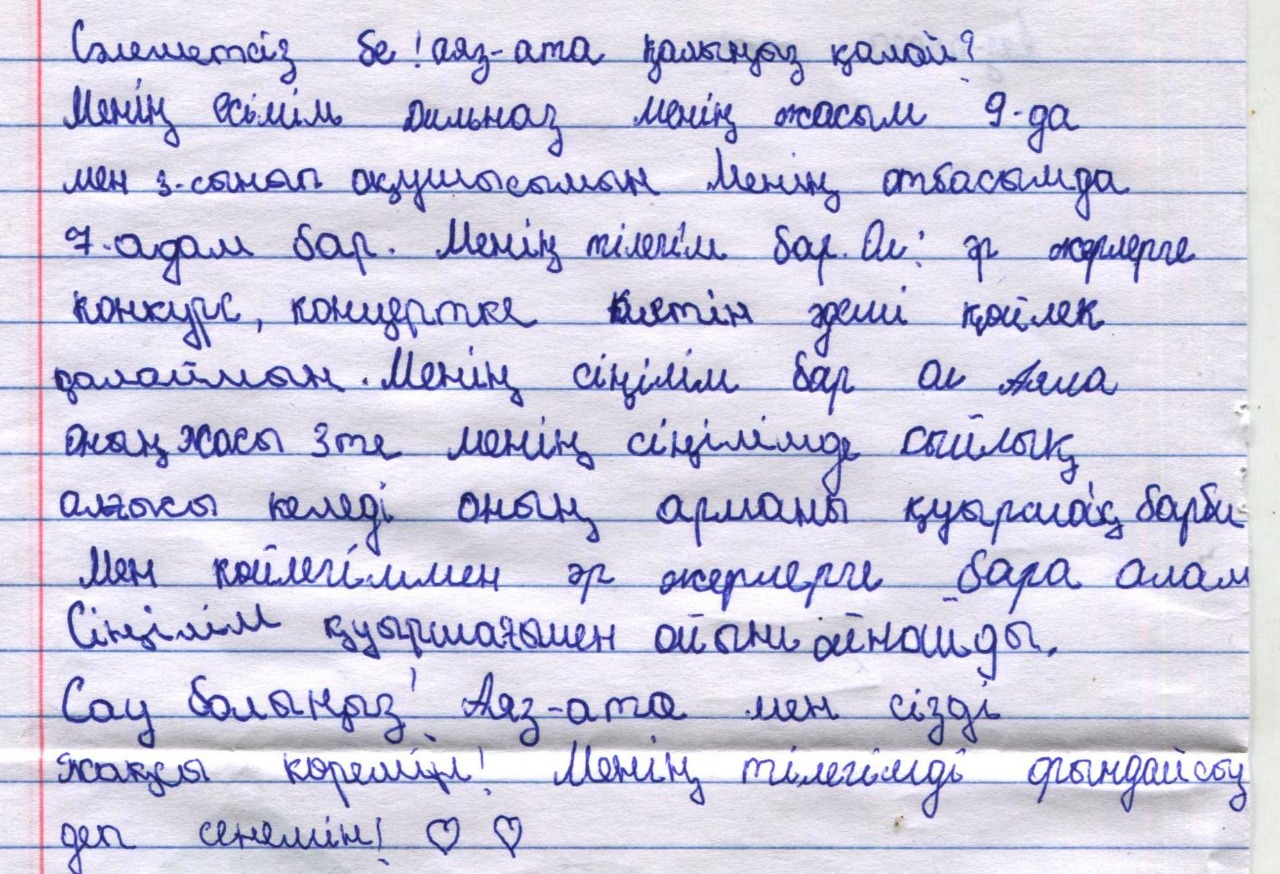 Сәлеметсіз бе! аяз-ата қалыңыз қалай?
Менің есімім Дильназ менің жасым 9-да
мен 3-сынып оқушысымын Менің отбасымда
7-адам бар. Менің тілегім бар. Ол: әр жерлерге
конкурс, концертке киетін әдемі көйлек
қалаймын. Менің сіңілім бар ол Аяла
оның жасы 3те менің сіңілімде сыйлық
алғысы келеді оның арманы қуыршақ барби
Мен көйлегіммен әр жерлерге бара алам
Сіңілім қуыршағымен ойын ойнайды.
Сау болыңыз! Аяз-ата мен сізді
жақсы көремін! Менің тілегімді орындайсыз
деп сенемін! ♡ ♡